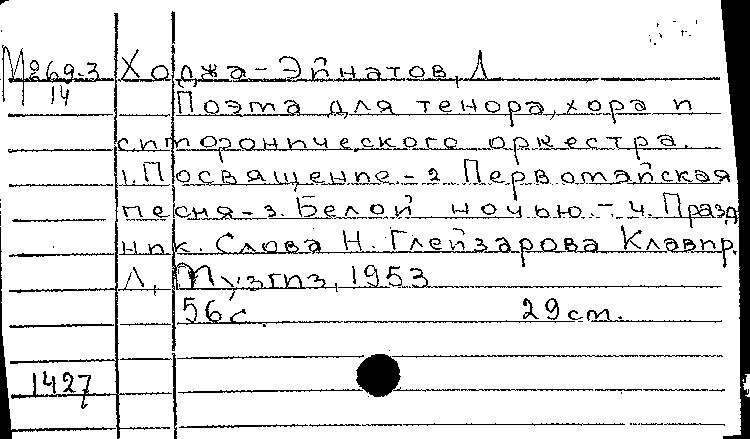 М269-3 Ходжа-Эйнатов, Л
14 Поэма для тенора, хора и
симфонического оркестра.
1. Посвящение - 2 Первомайская
песня - 3. Белой ночью. - 4. Празд
ник. Слова Н. Глейзарова Клавир.
Л, Музгиз, 1953
56 с. 29 см.
1427